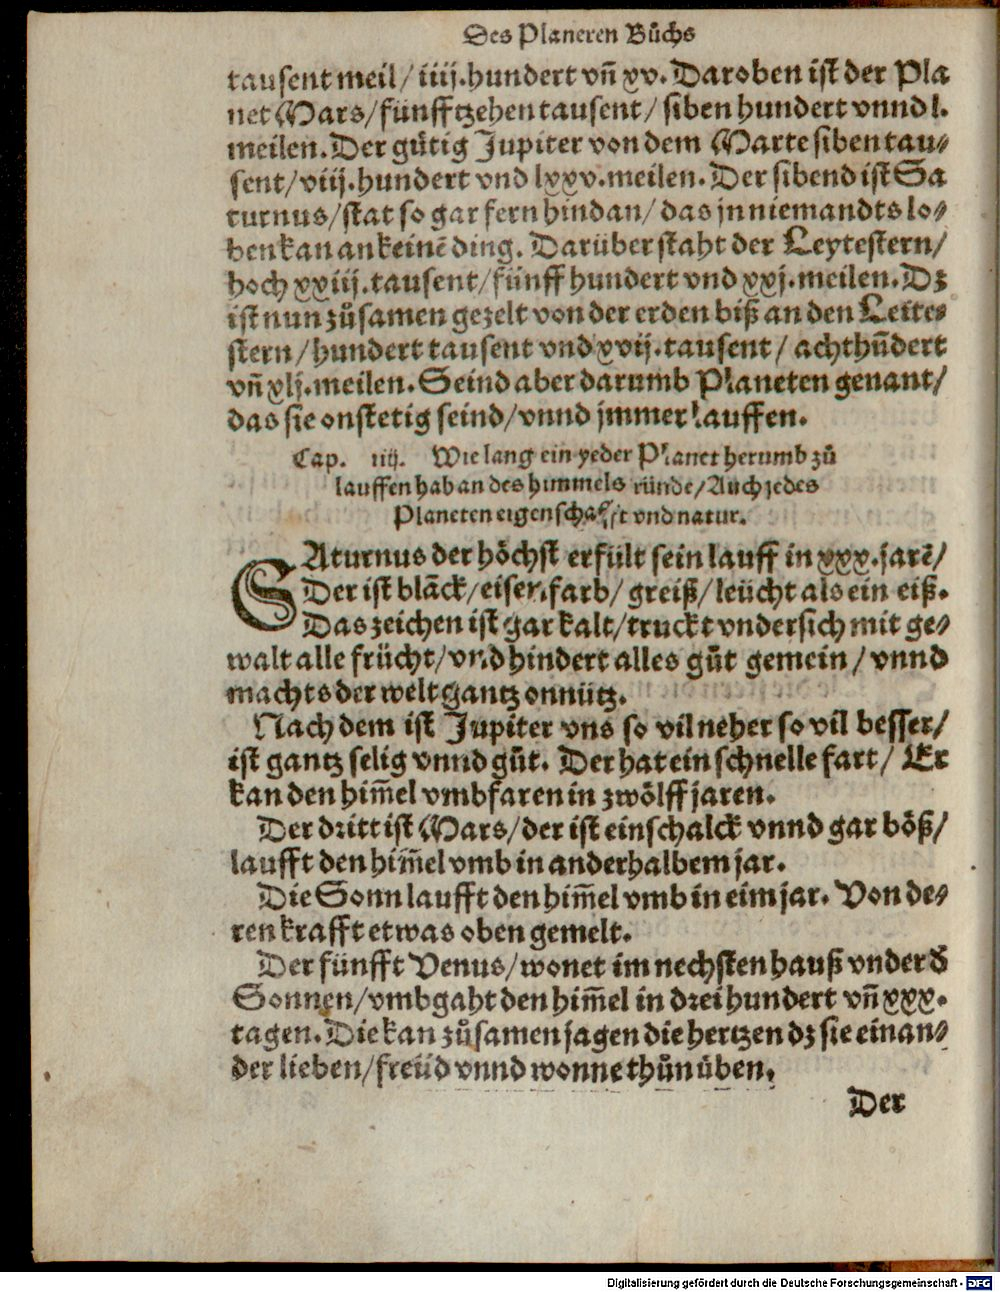 Des Planeten Bůchs
tausent meil / iiij.hundert vñ xv. Daroben ist der Pla
net Mars / fünfftzehen tausent / siben hundert vnnd l.
meilen. Der gůtig Jupiter von dem Marte siben tau⸗
sent / viij.hundert vnd lxxv.meilen. Der sibend ist Sa
turnus / stat so gar fern hindan / das jn niemandts lo⸗
ben kan an keinē ding. Darüber staht der Leytestern /
hoch xxiij.tausent / fünff hundert vnd xxj.meilen. Dz
ist nun zůsamen gezelt von der erden biß an den Leite⸗
stern / hundert tausent vnd xvij.tausent / achthūdert
vñ xlj.meilen. Seind aber darumb Planeten genant /
das sie onstetig seind / vnnd jmmer lauffen.
Cap. iiij. Wie lang ein yeder Planet herumb zů
lauffen hab an des himmels ründe / Auch jedes
Planeten eigenschafft vnd natur.
SAturnus der höchst erfült sein lauff in xxx.jarē /
Der ist blāck / eisen farb / greiß / leücht als ein eiß.
Das zeichen ist gar kalt / truckt vndersich mit ge⸗
walt alle frücht / vnd hindert alles gůt gemein / vnnd
machts der welt gantz onnütz.
Nach dem ist Jupiter vns so vil neher so vil besser /
ist gantz selig vnnd gůt. Der hat ein schnelle fart / Er
kan den him̄el vmbfaren in zwölff jaren.
Der dritt ist Mars / der ist ein schalck vnnd gar böß /
laufft den him̄el vmb in anderhalbem jar.
Die Sonn laufft den him̄el vmb in eim jar. Von de⸗
ren krafft etwas oben gemelt.
Der fünfft Venus / wonet im nechsten hauß vnder d̄
Sonnen / vmbgaht den him̄el in drei hundert vñ xxx.
tagen. Die kan zůsamen jagen die hertzen dz sie einan⸗
der lieben / freüd vnnd wonne thůn üben.
Der
Digitalisierung gefördert durch die Deutsche Forschungsgemeinschaft - DFG